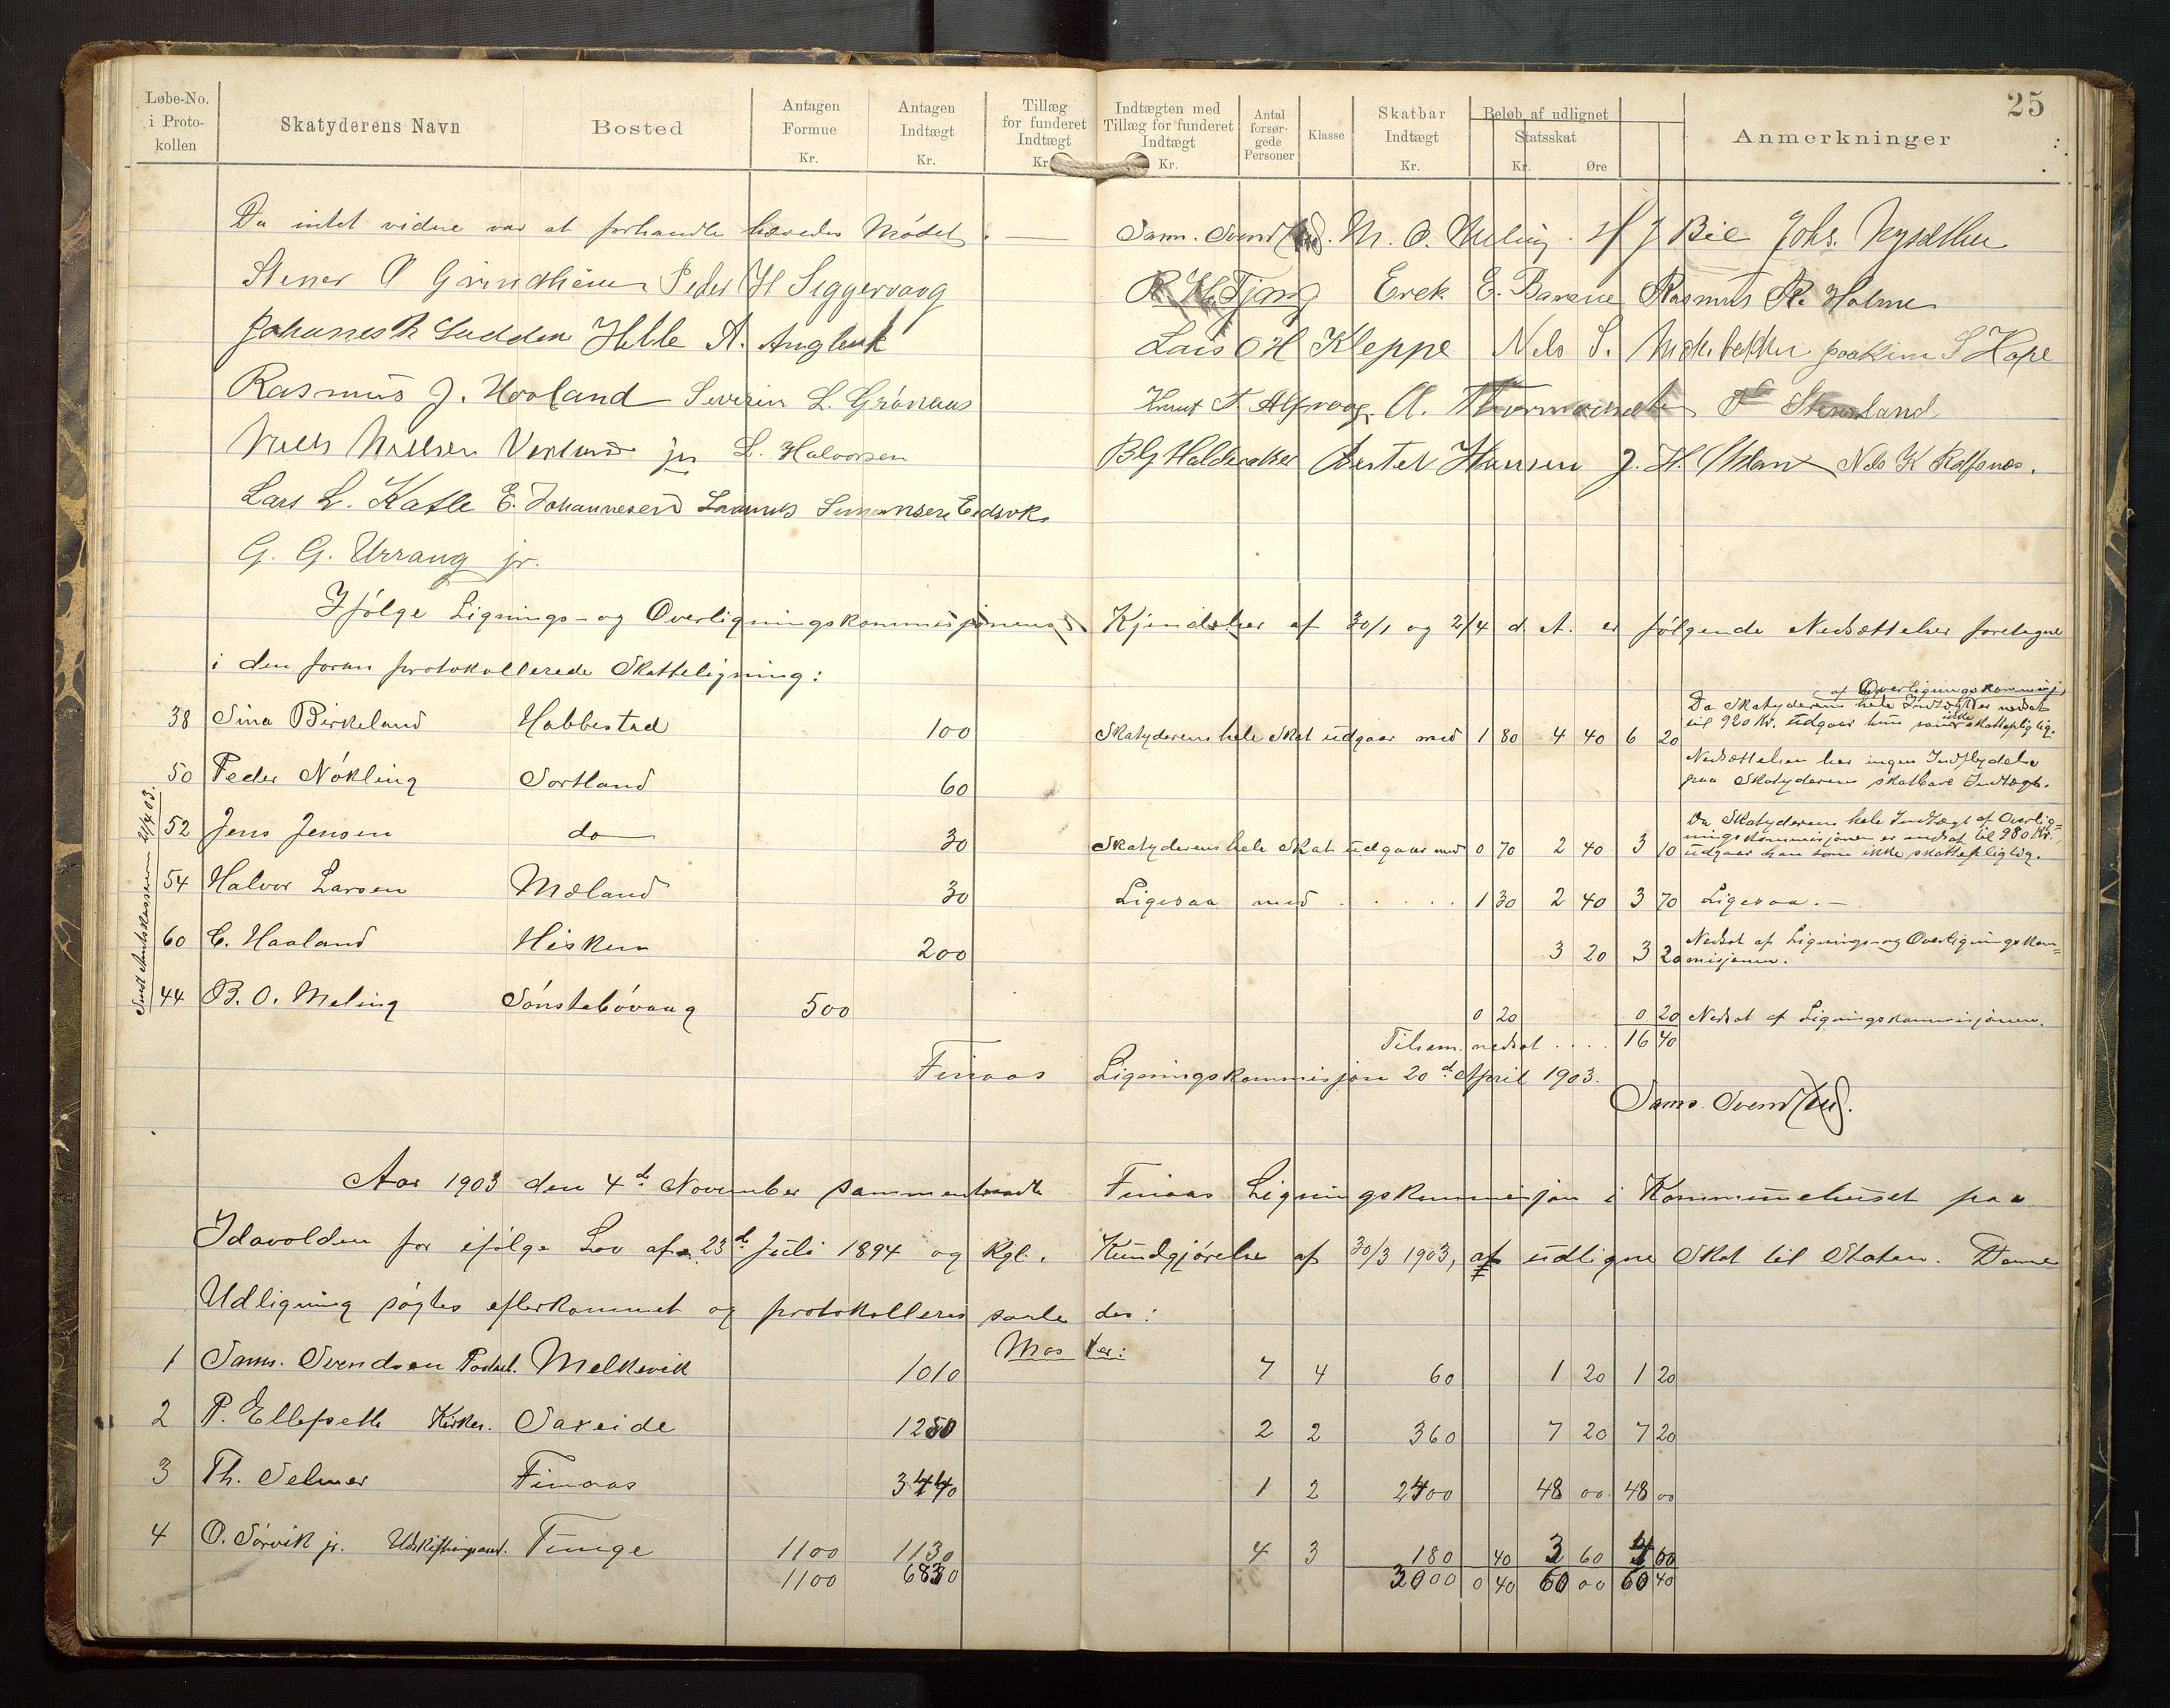 25
Løbe-No. i Proto- kollen
Skatyderens Navn
Bosted
Antagen Formue Kr.
Antagen Indtægt Kr.
Tillæg for funderet Indtægt Kr.
Indtægten med Tillæg for funderet Indtægt Kr.
Antal forsør- gede Personer
Klasse
Skatbar Indtægt Kr.
Beløb af udlignet Statsskat Kr. Øre
Anmerkninger
Da intet videre var at forhandle hævedes Mødet.
Sam. Svendsen. M. O. Meling. H J Bie Johs.
Stener O Grindheim Peder H Siggervaag
Erek E. Rasmus R. Holme
Johannes Helle A.
Lars O H Kleppe Nels S. Joakim S Hope
Rasmus J. Hovland Severin L. Grönaas
Knut T. Alfvaag. O.
Niels Nielsen jr L. Halvorsen
B G Halderaker Hansen J. H. Nels K Rolfsnes.
Lars L. Katle E. Johannesen Simonsen Eidsvk
G. G. Urrang jr.
Ifølge Lignings- og Overligningskommisjonens Kjendelser af 30/1 og 2/4 d. A. er følgende Nedsættelser foretagne
i den foran protokollerede Skatteligning:
38 Sina Birkeland Habbestad 100 Skatyderens hele Skat udgaar med 1 80 4 40 6 20 Da Skatyderens hele Indtægt af Overligningskommisj. er nedsat til 920 Kr. udgaar hun som ikke skattepligtig.
50 Peder Nökling Sortland 60 Nedsættelsen har ingen Indflydelse paa Skatyderens skatbare Indtægt.
52 Jens Jensen do 30 Skatyderens hele Skat udgaar med 0 70 2 40 3 10 Da Skatyderens hele Indtægt af Overlig= ningskommisjonen er nedsat til 980 Kr., udgaar han som ikke skattepligtig.
54 Halvor Larsen Mæland 30 Ligesaa med . . . . . 1 30 2 40 3 70 Ligesaa. —
60 C. Haaland Hisken 200 3 20 3 20 Nedsat af Lignings- og Overligningskom= misjonen.
44 B. O. Meling Sönstabövaag 500 0 20 0 20 Nedsat af Ligningskommisjonen.
Sendt Amtskassereren 21/4 03.
Tilsam. nedsat . . . . 16 40
Finaas Ligningskommisjon 20d. April 1903.
Sams. Svendsen.
Aar 1903 den 4de November sammentraadte Finaas Ligningskommisjon i Kommunehuset paa
Idavolden for ifølge Lov af 23d. Juli 1894 og Kgl. Kundgjørelse af 30/3 1903, at udligne Skat til Staten. Denne
Udligning søgtes efterkommet og protokolleres saaledes:
Moster:
1 Sams. Svendsen Melkevik 1010 7 4 60 1 20 1 20
2 P. Kirkes. Sakseide 1250 2 2 360 7 20 7 20
3 Th. Selmer Finaas 3440 1 2 2400 48 00 48 00
4 O. Sörvik jr. Udskiftningsass. Tunge 1100 1130 4 3 180 40 3 60 4 00
1100 6830 3000 0 40 60 00 60 40